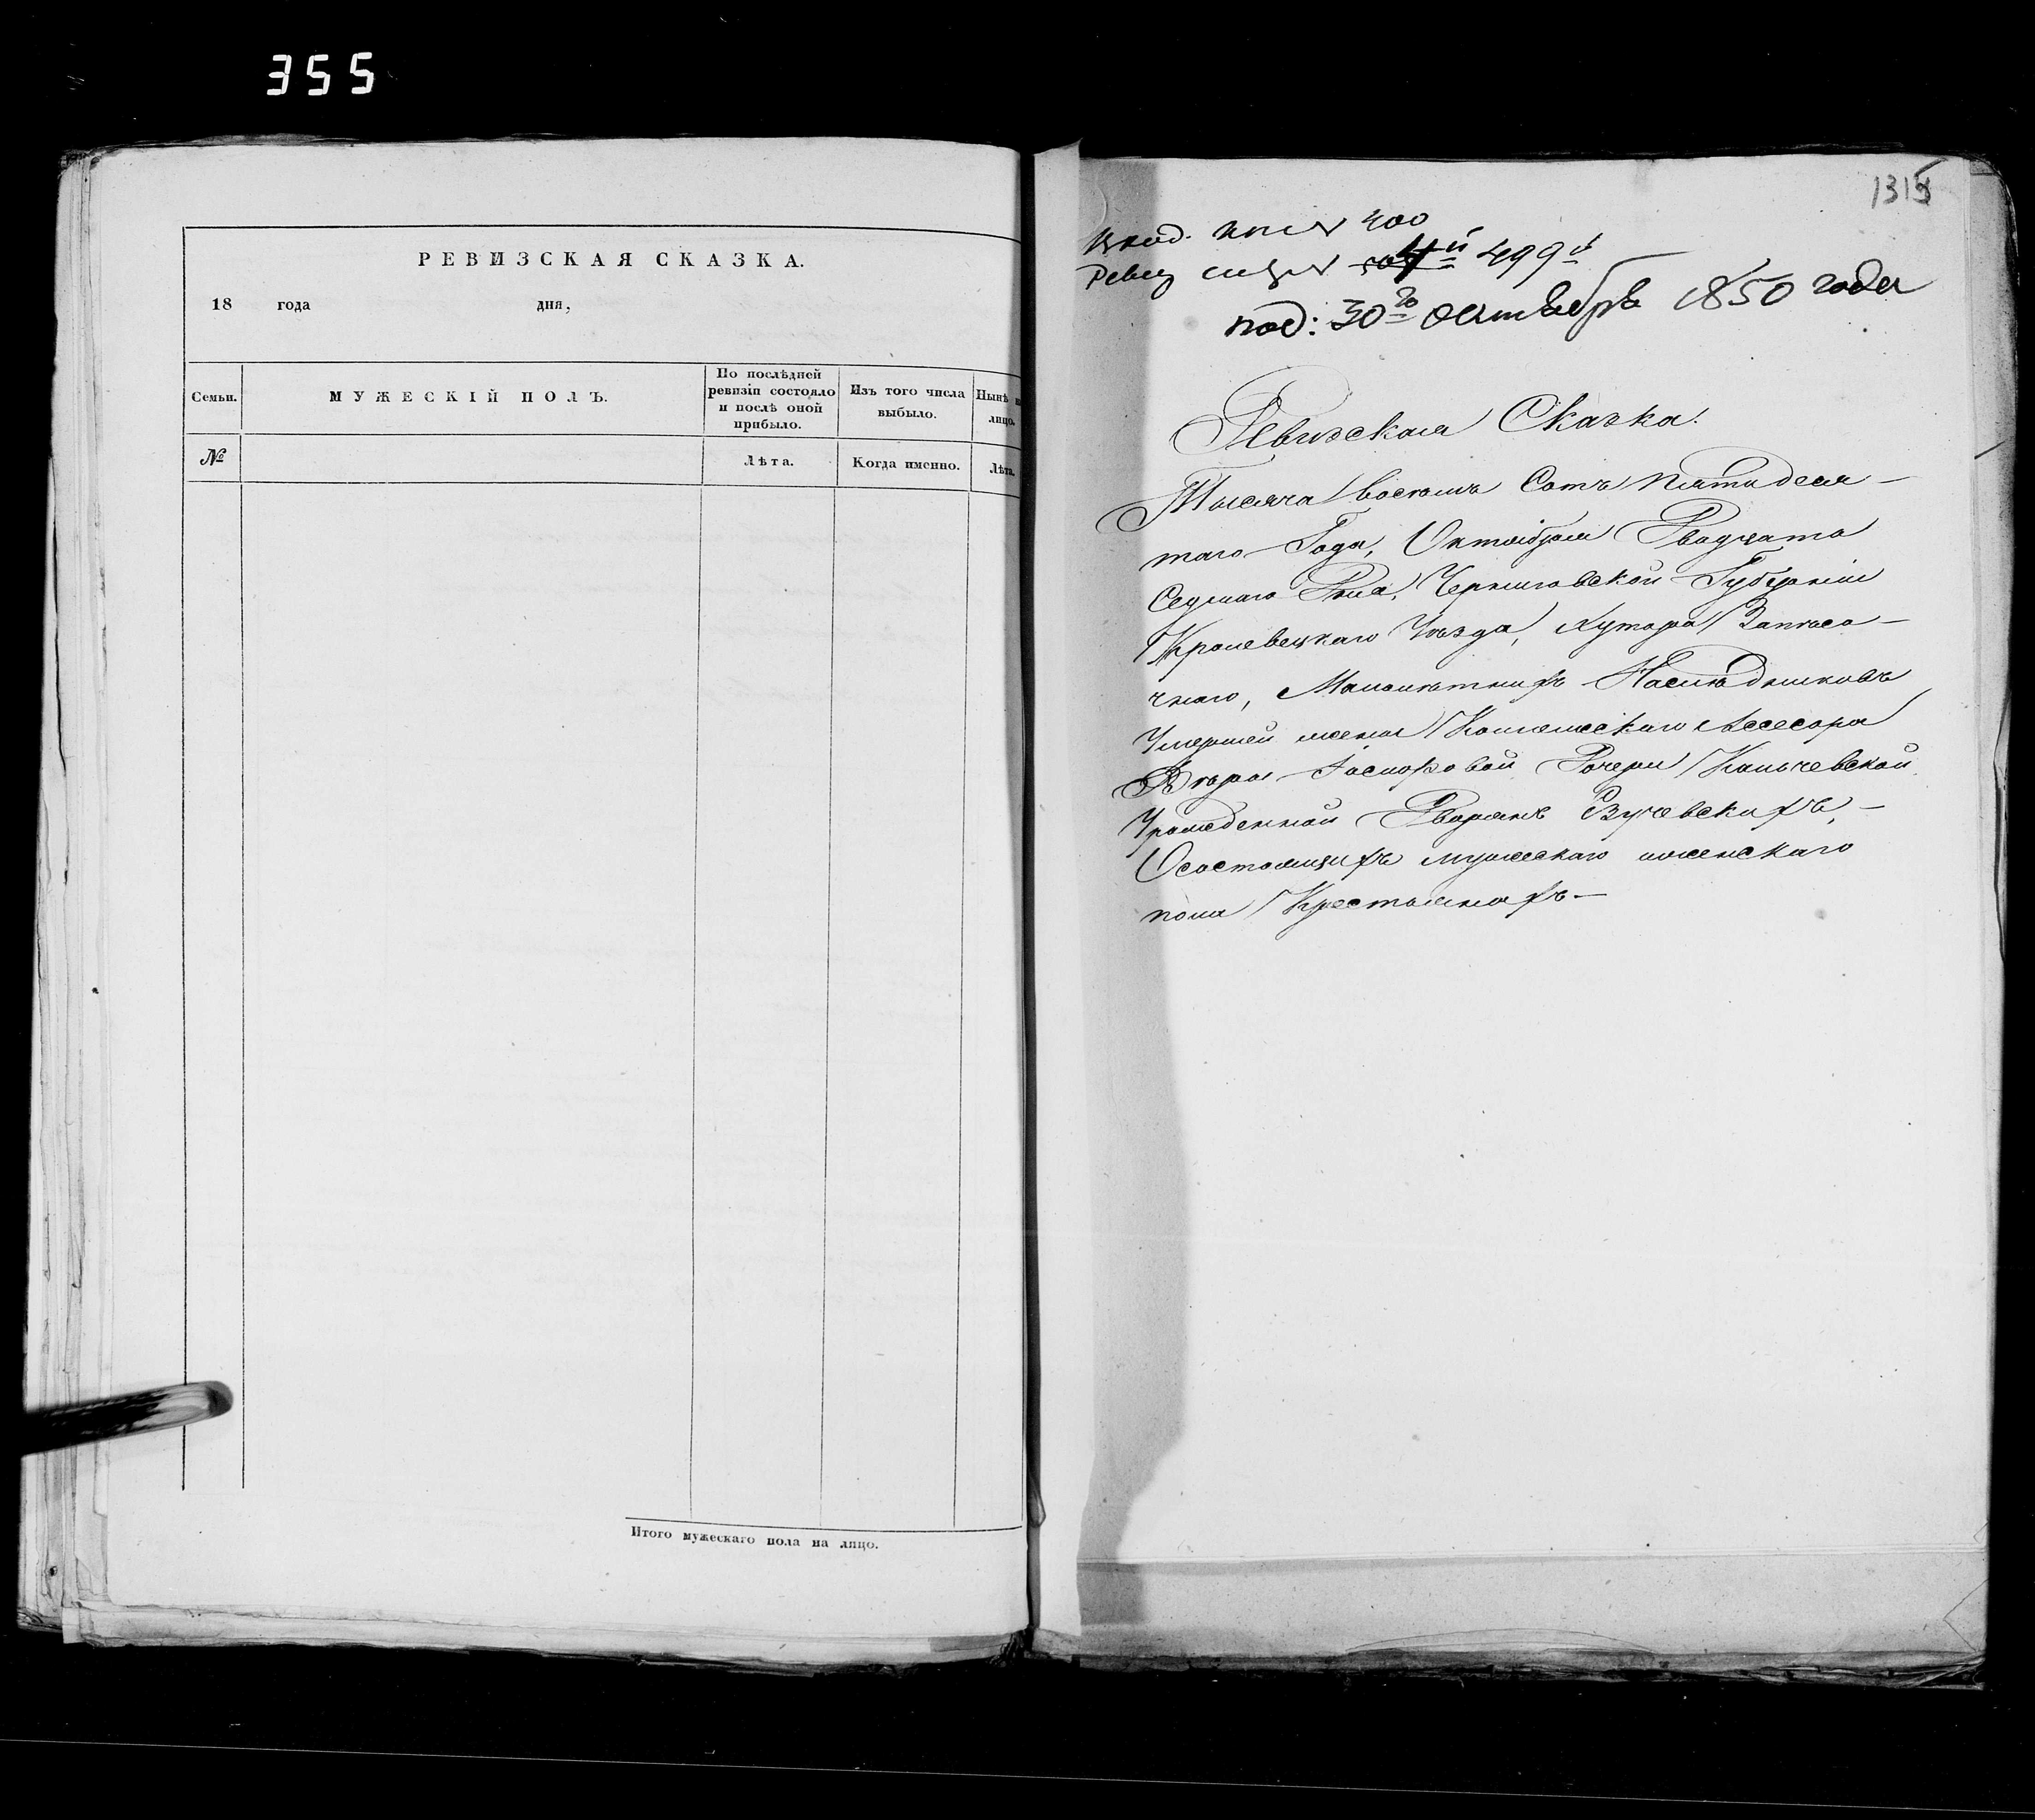 355
РЕВИЗСКАЯ СКАЗКА.
18 года дня,
Семьи.
МУЖЕСКІЙ ПОЛЪ.
По послѣдней
ревизіи состояло
и послѣ оной
прибыло.
Изъ того числа
выбыло.
Нынѣ на
лицо.
№
Лѣта.
Когда именно.
Лѣта.
Итого мужескаго пола на лицо.
1315
400
499й
под: 30го Октября 1850 года
Ревизская Сказка.
Тысяча восемь Сотъ пятидеся-
таго Года, Октября Двадцато
Седмаго Дня, Черниговской Губерніи
Кролевецкаго Уѣзда, Хутора
чнаго, Малолѣтнихъ Наслѣдниковъ
Умершей жены Колежскаго Ассесора
Вѣры Дочери
Урожденной Дворянъ
Осостоящихъ мужескаго иженскаго
пола Крестьянахъ-